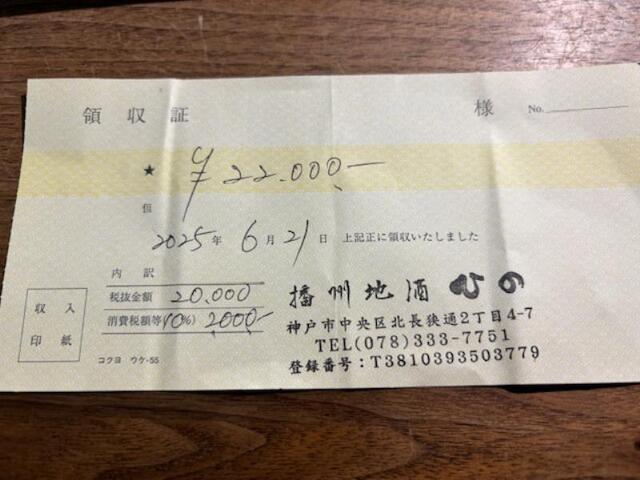 領収証 様 No.
★ ¥22.000-
但
2025年 6月21日 上記正に領収いたしました
内訳
税抜金額 20.000
消費税額等(10%) 2000-
収入
印紙
コクヨ ウケ-55
播州地酒 ひの
神戸市中央区北長狭通2丁目4-7
TEL(078)333-7751
登録番号:T3810393503779